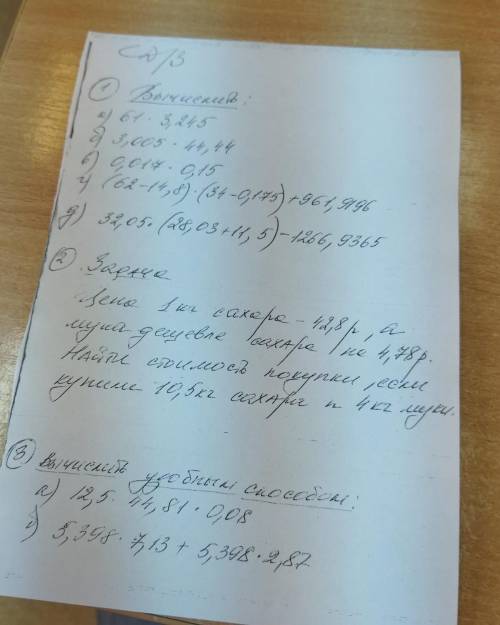 С Д/З
① Вычислить:
а) 61 · 3,245
б) 3,005 · 44,44
в) 0,017 · 0,15
г) (62-14,8) · (34-0,175) + 961,9196
д) 32,05 · (28,03+11,5) - 1266,9365
② Задача
Цена 1 кг сахара - 42,8 р, а
мука дешевле сахара на 4,78 р.
Найти стоимость покупки, если
купили 10,5 кг сахара и 4 кг муки.
③ Вычислить удобным способом:
а) 12,5 · 44,81 · 0,08
б) 5,398 · 7,13 + 5,398 · 2,87